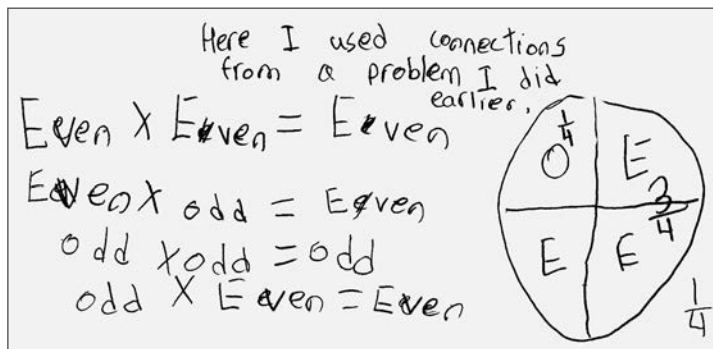 Here I used connections
from a problem I did
earlier.
Even X Even = Even
Even X odd = Even
odd X odd = odd
odd X Even = Even
1/4
O E
3/4
E E
1/4